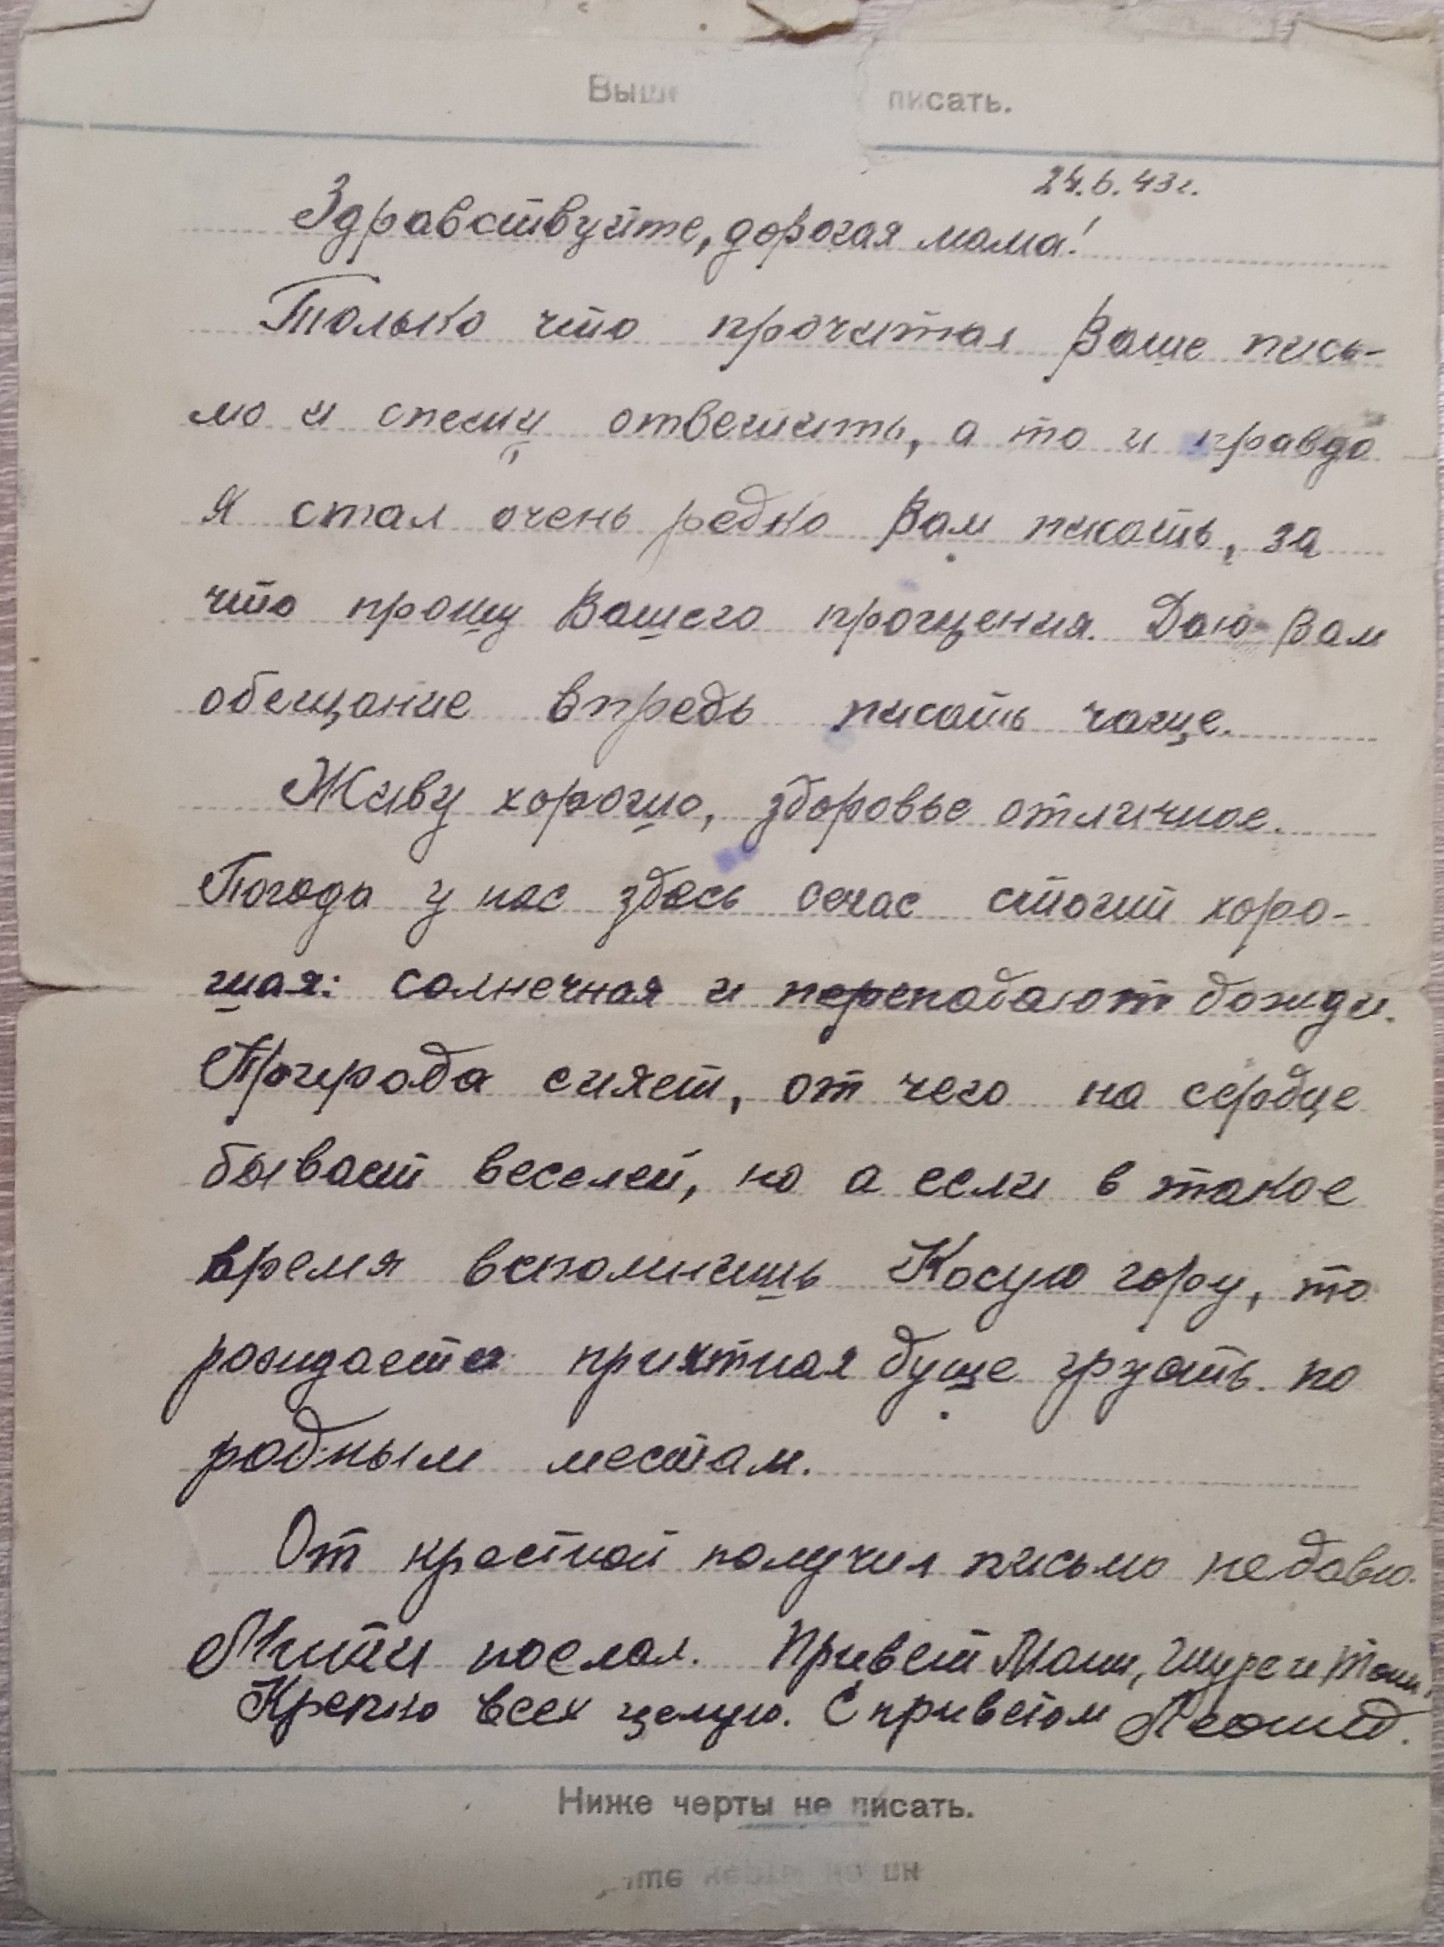 Выше писать.
24.6.43г.
Здравствуйте, дорогая мама!
Только что прочитал Ваше пись-
мо и спешу ответить, а то и правда
я стал очень редко Вам писать, за
что прошу Вашего прощения. Даю Вам
обещание впредь писать чаще.
Живу хорошо, здоровье отличное.
Погода у нас здесь сечас стогий хоро-
шая: солнечная и перепадают дожди.
Природа сияет, от чего на сердце
бывает веселей, но а если в такое
время вспомнишь Косую гору, то
рождается приятная душе грусть по
родным местам.
От крестной получил письмо недавно.
Мити послал. Привет Мани, Шуре и Тони.
Крепко всех целую. С приветом Леонид.
Ниже черты не писать.